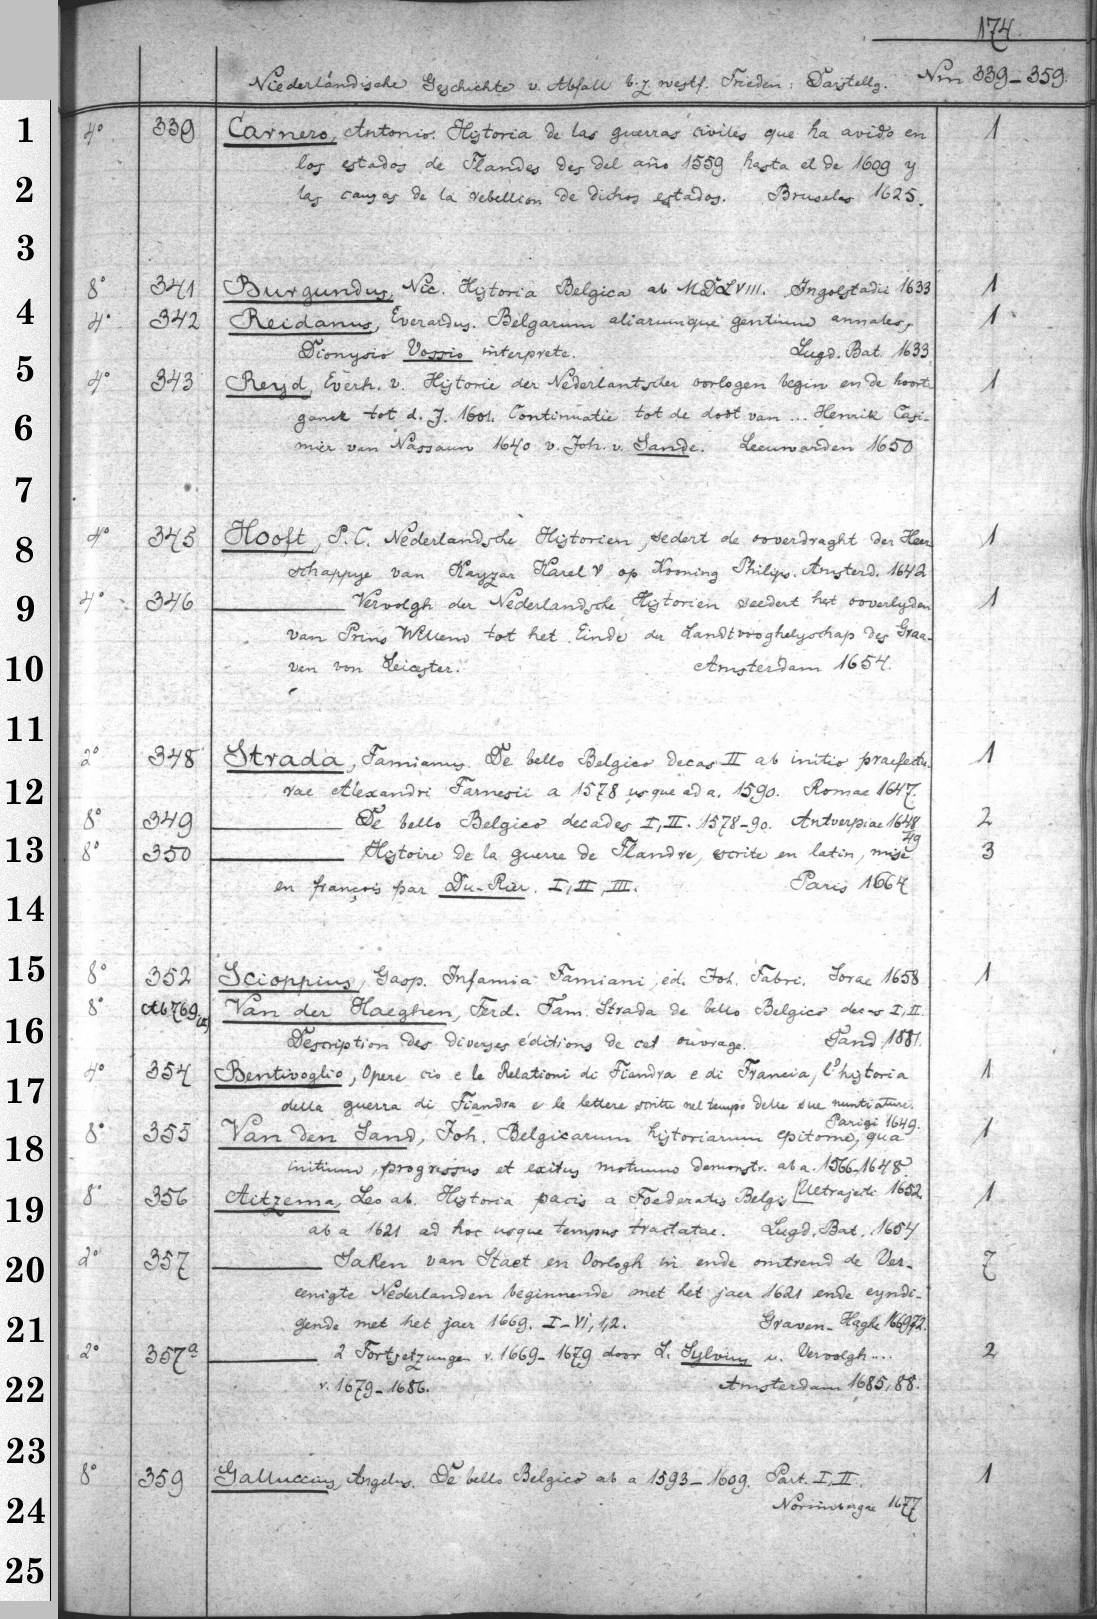 174.
Niederländische Geschichte v. Abfall b. z. westf. Frieden: Darstellg. Nrn 339-359.
1
4° 339 Carnero, Antonio. Historia de las guerras civiles que ha avido en 1
los estados de Flandes des del año 1559 hasta el de 1609 y
2
las causas de la rebellion de dichos estados. Bruselas 1625.
3
8° 341 Burgundus, Nic. Historia Belgica ab MDLVIII. Ingolstadii 1633 1
4
4° 342 Reidanus, Everardus. Belgarum aliarumque gentium annales, 1
Dionysio Vossio interprete. Lugd. Bat. 1633
5
4° 343 Reyd, Everh. v. Historie der Nederlantscher oorlogen begin ende voort-
1
ganck tot d. J. 1601. Continuatie tot de doot van ... Henrik Casi-
6
mier van Nassauw 1640 v. Joh. v. Sande. Leeuwarden 1650
7
4° 345 Hooft, P. C. Nederlandsche Historien, sedert de ooverdraght der Heer- 1
8
schappye van Kayzar Karel V op Kooning Philips. Amsterd. 1642
9
4° 346 Vervolgh der Nederlandsche Historien seedert het ooverlyden 1
van Prins Willem tot het Einde der Landtvooghdyschap des Graa-
10
ven van Leicester. Amsterdam 1654.
11
2° 348 Strada, Famianus. De bello Belgico decas II ab initio praefectu- 1
12
rae Alexandri Farnesii a 1578 usque ad a. 1590. Romae 1647.
8° 349 De bello Belgico decades I, II. 1578-90. Antverpiae 1648 2
49
13
8° 350 Histoire de la guerre de Flandre, escrite en latin, mise 3
en françois par Du-Rier. I, II, III. Paris 1664
14
15
8° 352 Scioppius, Gasp. Infamia Famiani, ed. Joh. Fabri. Sorae 1658 1
8° Ab 769 Van der Haeghen, Ferd. Fam. Strada de bello Belgico decas I, II.
16
Description des diverses éditions de cet ouvrage. Gand 1881.
4° 354 Bentivoglio, Opere cio e le Relationi di Fiandra e di Francia, l'historia 1
17
della guerra di Fiandra e le lettere scritte nel tempo delle sue nuntiature.
Parigi 1649.
8° 355 Van den Sand, Joh. Belgicarum historiarum epitome, qua 1
18
initium, progressus et exitus motuum demonstr. ab a. 1566-1648
Ultrajecti 1652
19
8° 356 Aitzema, Leo ab. Historia pacis a Foederatis Belgis 1
ab a 1621 ad hoc usque tempus tractatae. Lugd. Bat. 1654
20
2° 357 Saken van Staet en Oorlogh in ende omtrend de Ver- 7
eenigte Nederlanden beginnende met het jaer 1621 ende eyndi-
21
gende met het jaer 1669. I-VI, 1,2. Graven-Haghe 1669,72.
2° 357a 2 Fortsetzungen v. 1669-1679 door L. Sylvius u. Vervolgh ... 2
22
v. 1679-1686. Amsterdam 1685, 88.
23
8° 359 Galluccius, Angelus. De bello Belgico ab a 1593-1609. Part. I, II. 1
24
Norimbergae 1677
25